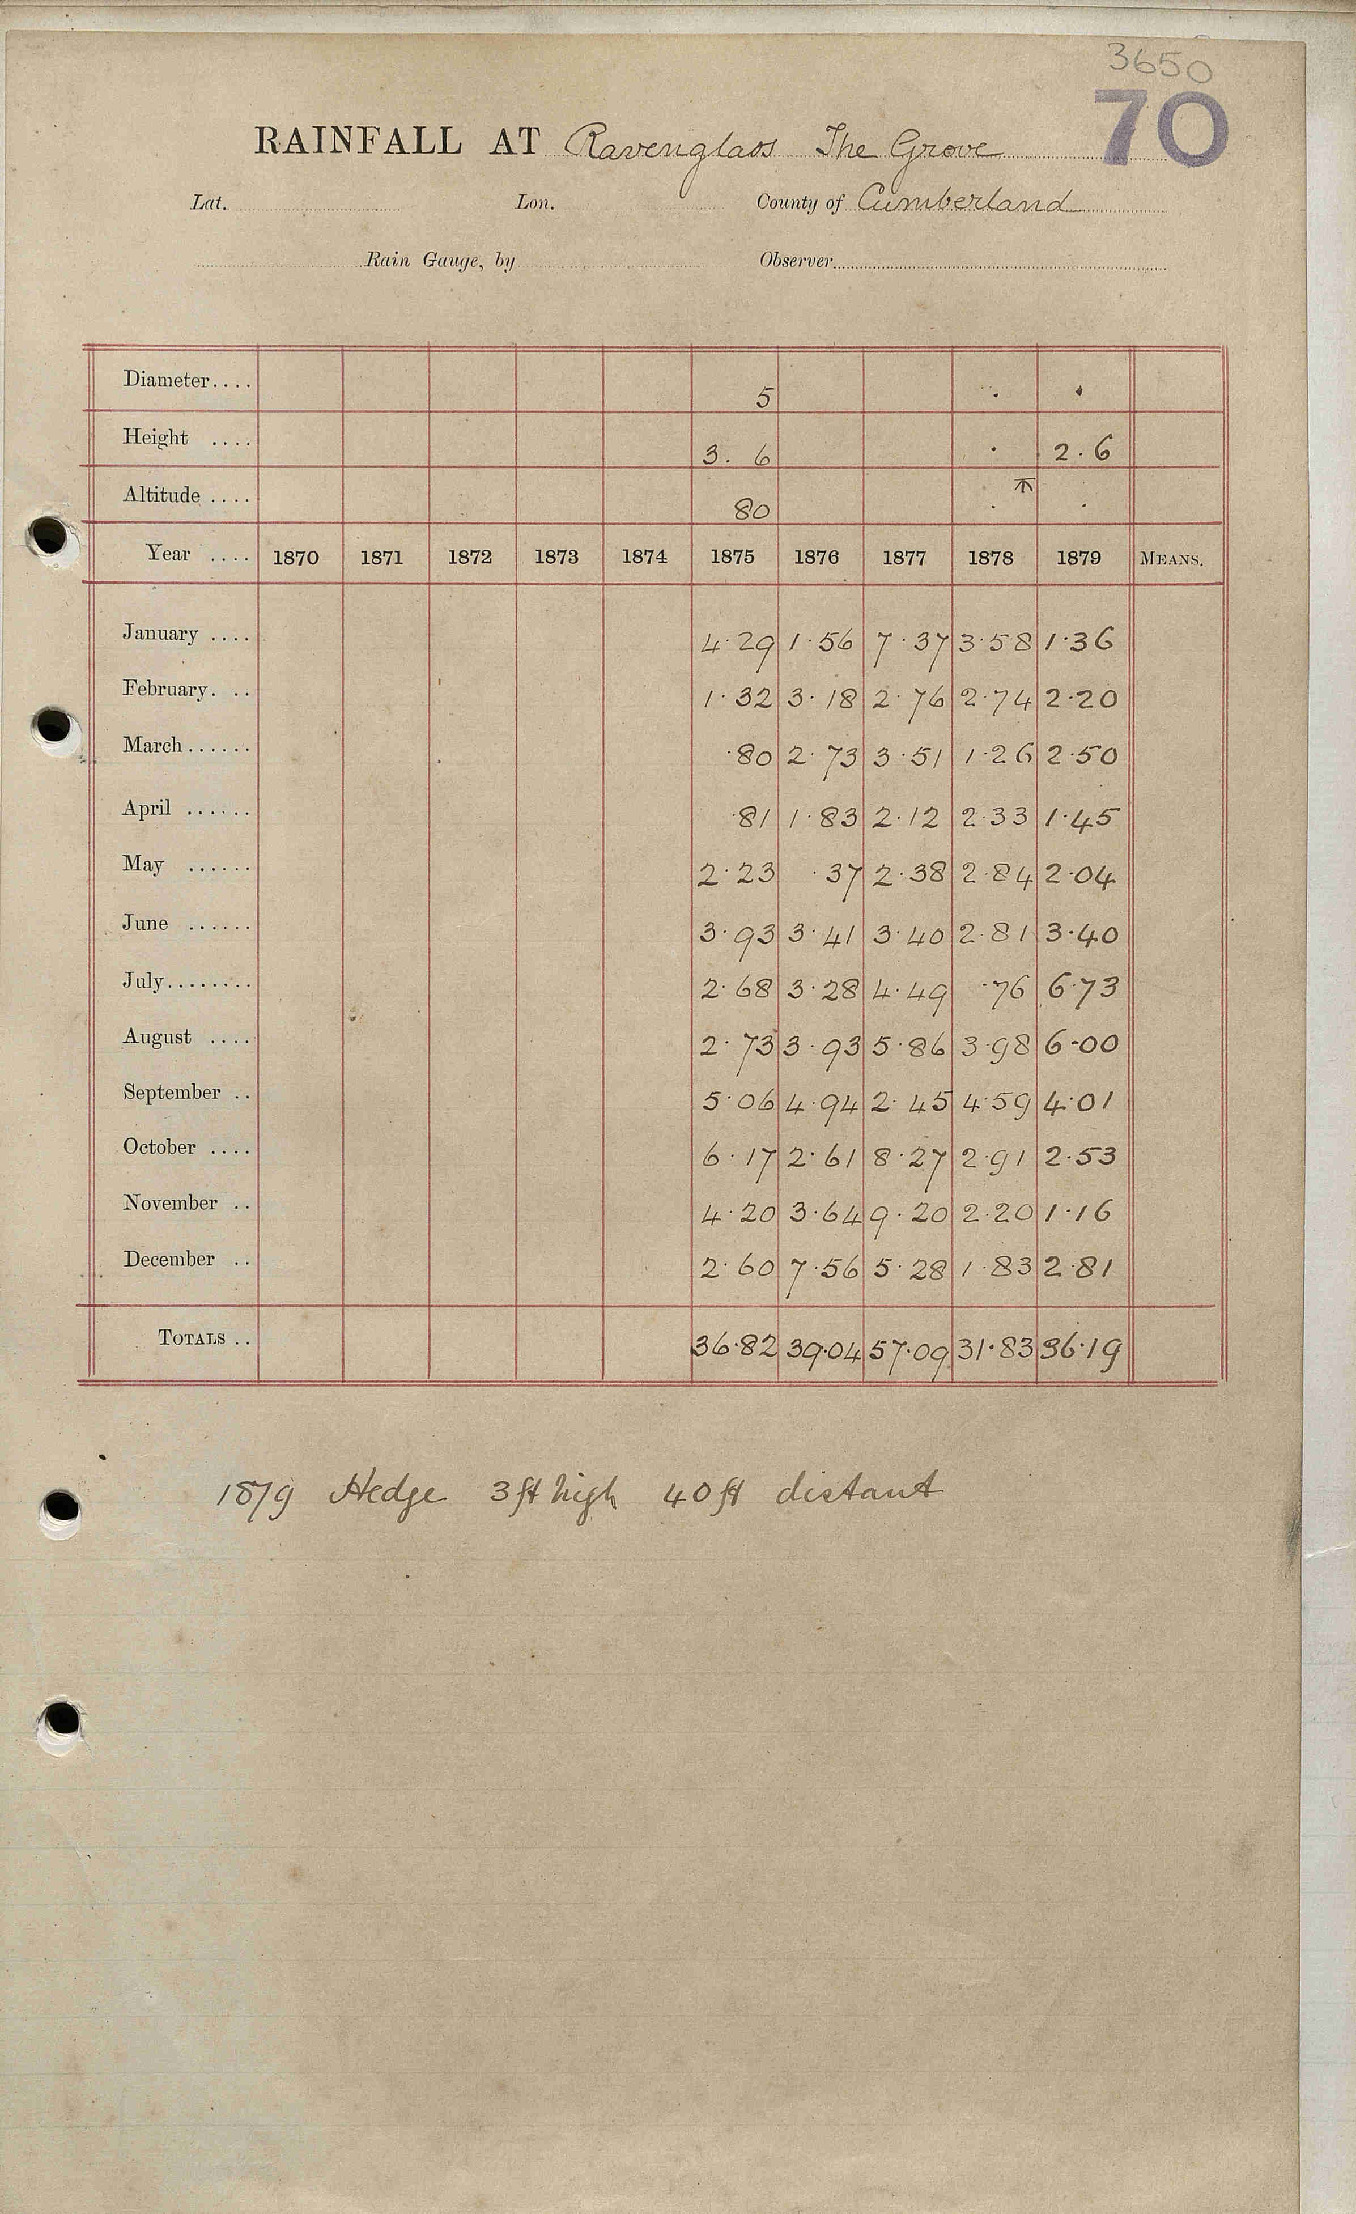 3650
70
RAINFALL AT Ravenglass The Grove
Lat. Lon. County of Cumberland
Rain Gauge, by Observer
Diameter.... 5 . .
Height .... 3. 6 . 2.6
Altitude .... 80 . .
Year .... 1870 1871 1872 1873 1874 1875 1876 1877 1878 1879 MEANS.
January .... 4.29 1.56 7.37 3.58 1.36
February. .. 1.32 3.18 2.76 2.74 2.20
March...... .80 2.73 3.51 1.26 2.50
April ...... .81 1.83 2.12 2.33 1.45
May ...... 2.23 .37 2.38 2.84 2.04
June ...... 3.93 3.41 3.40 2.81 3.40
July........ 2.68 3.28 4.49 .76 6.73
August .... 2.73 3.93 5.86 3.98 6.00
September .. 5.06 4.94 2.45 4.59 4.01
October .... 6.17 2.61 8.27 2.91 2.53
November .. 4.20 3.64 9.20 2.20 1.16
December .. 2.60 7.56 5.28 1.83 2.81
TOTALS .. 36.82 39.04 57.09 31.83 36.19
1879 Hedge 3ft high 40ft distant